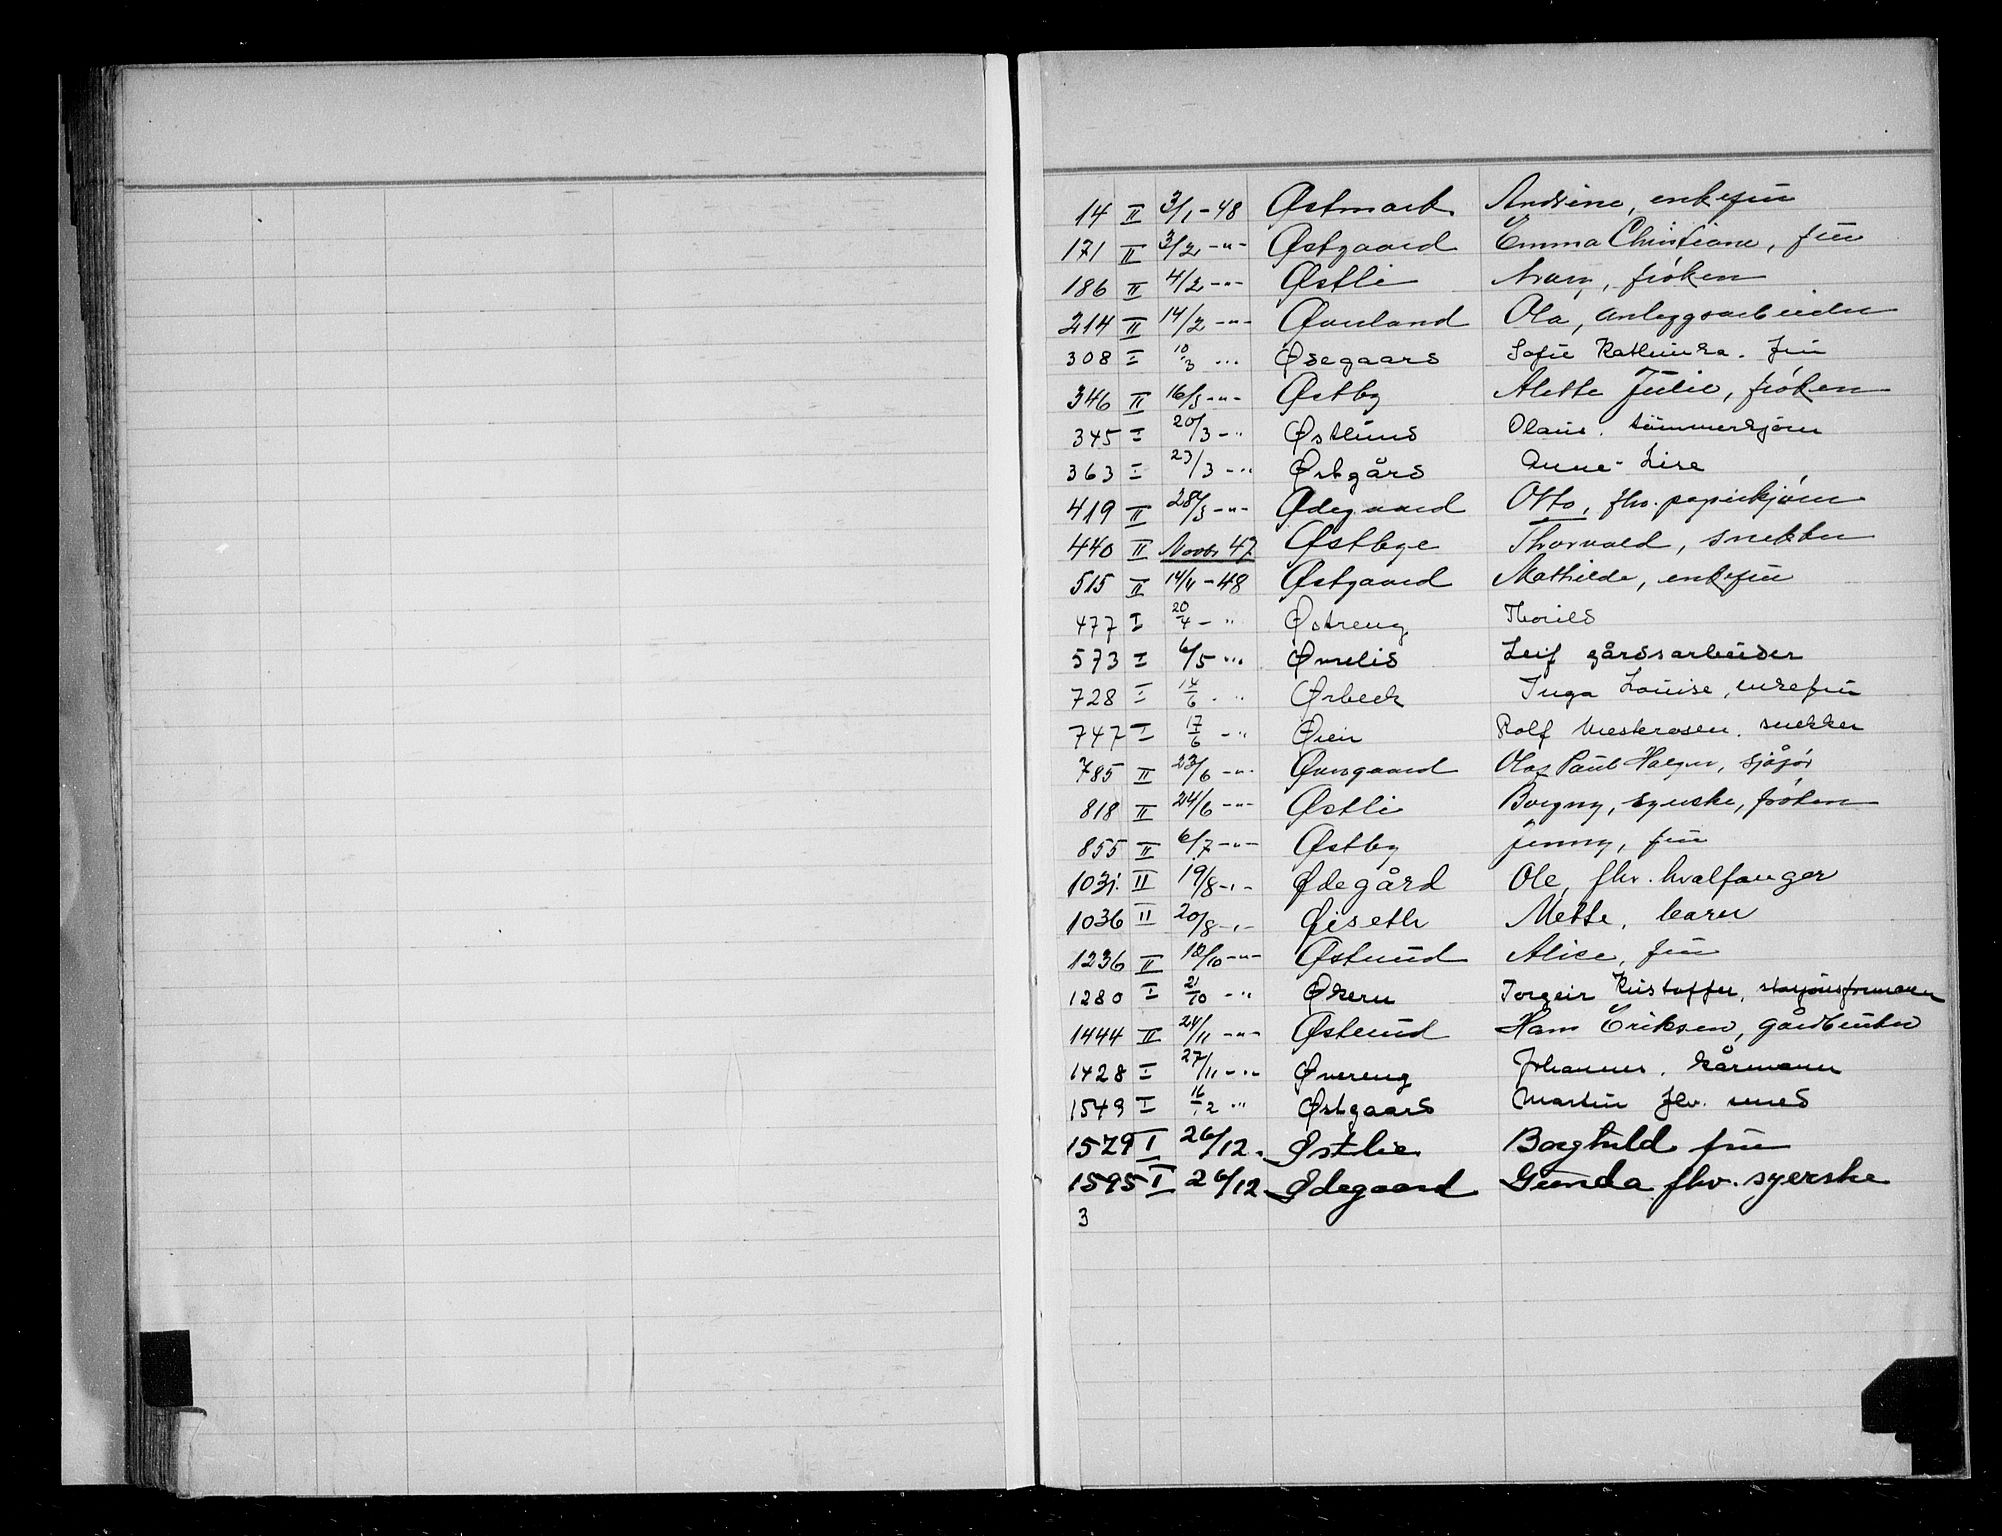 14 II 3/1 - 48 Østmark Andrine, enkefru
171 II 3/2 - " - Østgaard Emma Christiane, fru
186 II 4/2 - " - Østli frøken
214 II 14/2 - " - Øverland Ola, anleggsarbeider
308 I 10/3 " Ødegaard Sofie Kathinka. fru
346 II 16/3 - " - Østby Alette Julie, frøken
345 I 20/3 - " Østlund Olaus. tømmerkjører
363 I 23/3 - " Østgård Anne-Lise
419 II 28/3 - " - Ødegaard Otto, fhv. papirkjører
440 II Novbr 47 Østbye Thorvald, snekker
515 II 14/4 - 48 Østgaard Mathilde, enkefru
477 I 20/4 - " Østreng Thorild
573 I 6/5 " Øvrelid Leif gårdsarbeider
728 I 14/6 - " Ørbeck Inga Louise, enkefru
747 I 17/6 - " Øien Rolf snekker
785 II 23/6 - " - Øvergaard Olaf Paul Holger, sjåfør
818 II 24/6 - " - Østli Borgny, syerske, frøken
855 II 6/7 - " - Østby Jenny, fru
1031. II 19/8 - " - Ødegård Ole, fhv. hvalfanger
1036 II 20/8 - " - Øiseth Mette, barn
1236 II 12/10 - " - Østlund Alice, fru
1280 I 21/10 - " Økern Torgeir Kristoffer, stasjonsformann
1444 II 24/11 - " - Østlund Hans Eriksen, gårdbruker
1428 I 27/11 - " - Øvereng Johannes. kårmann
1549 I 16/12 " Østgaard Martin fhv. smed
1579 I 26/12. Østlie Borghild fru
1595 I 26/12 Ødegaard Gunda fhv. syerske
3